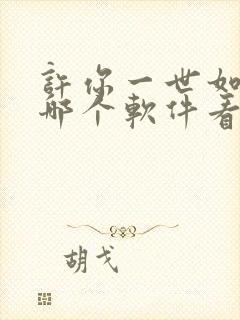 許你一世如
哪个軟件看
胡戈